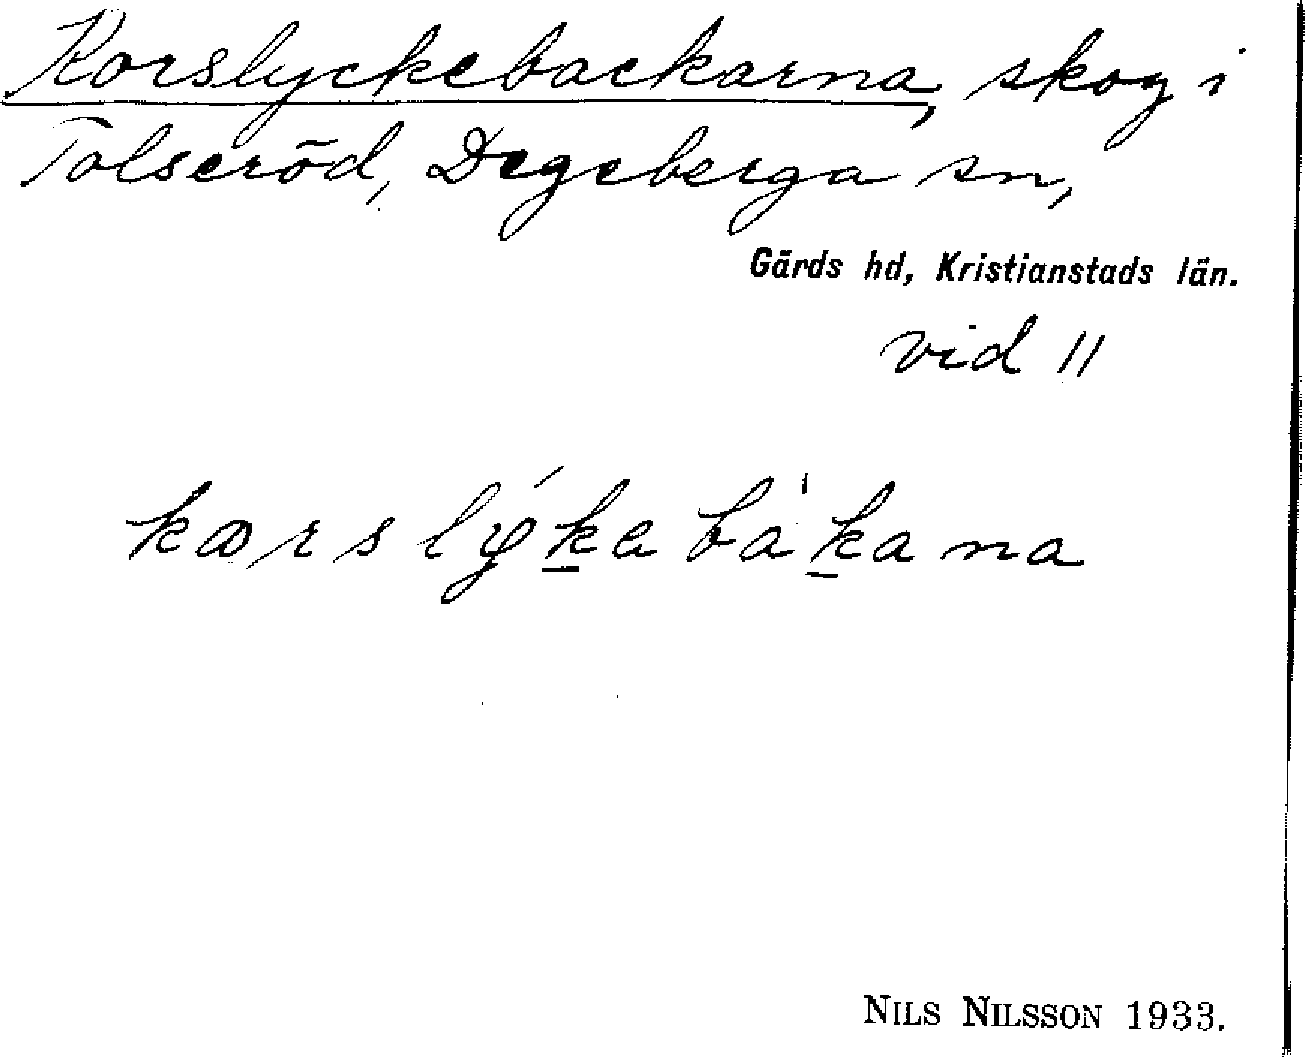 Korslyckebackarna, skog i
Tolseröd, Degeberga sn,
Gärds hd, Kristianstads län.
vid 11
kƣrslýkebàkana
NILS NILSSON 1933.